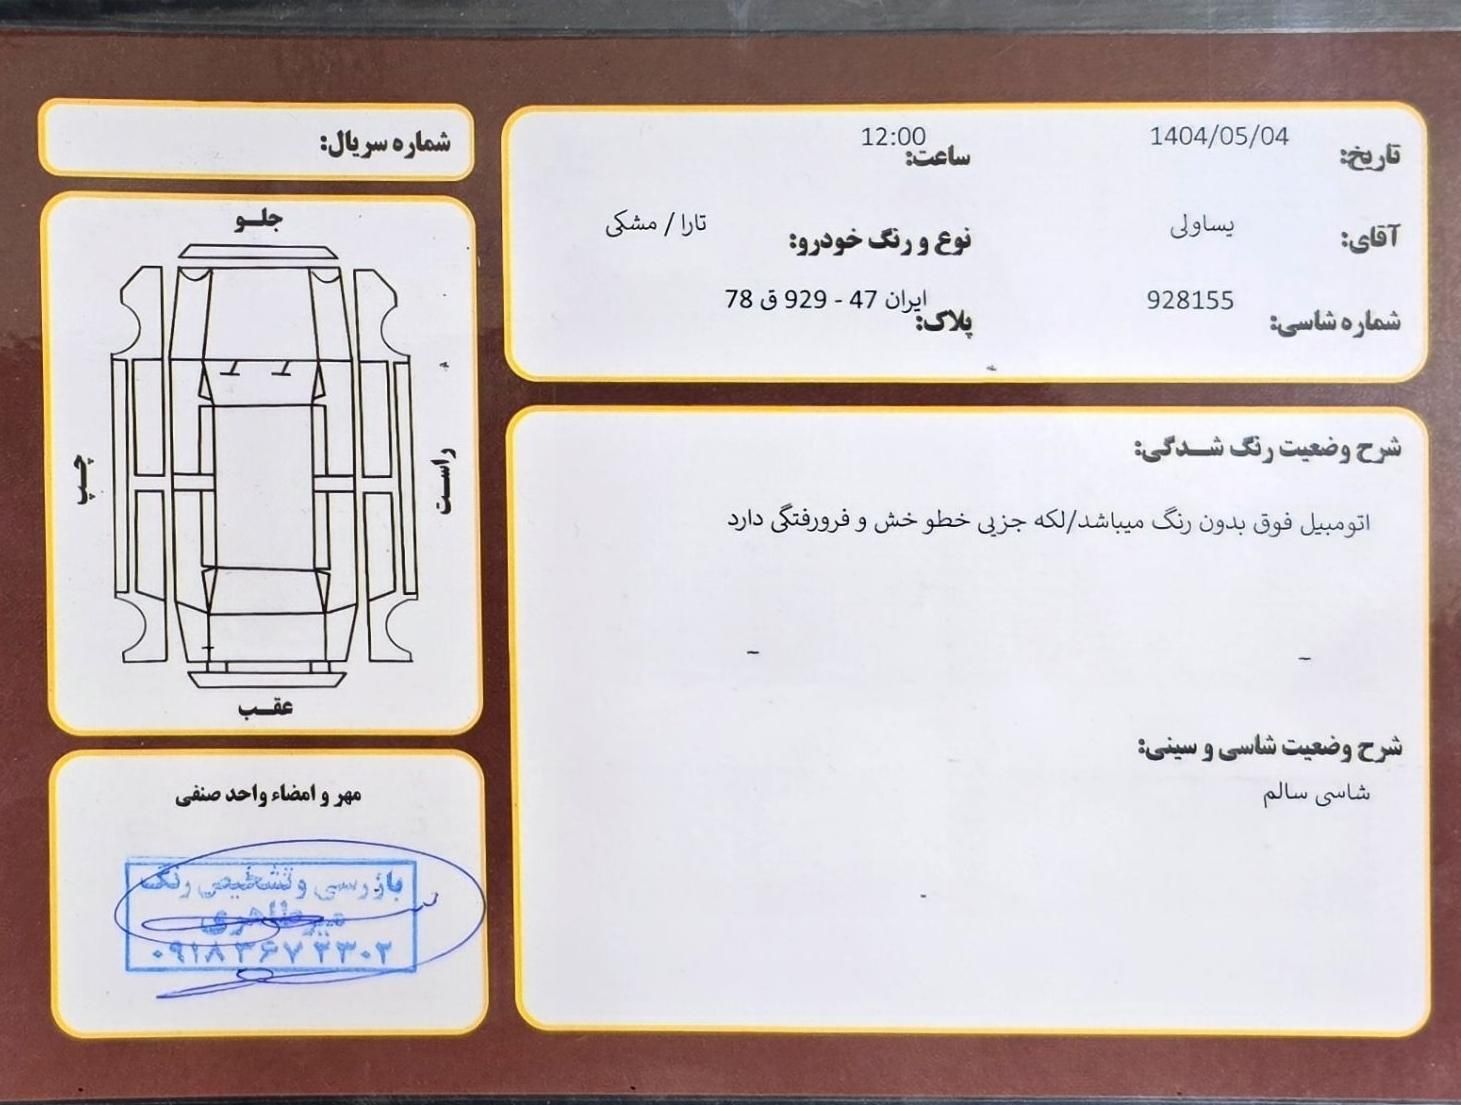 تاریخ: 1404/05/04
ساعت: 12:00
آقای: یساولی
نوع و رنگ خودرو: تارا / مشکی
شماره شاسی: 928155
پلاک: ایران 47 - 929 ق 78
شرح وضعیت رنگ شدگی:
اتومبیل فوق بدون رنگ میباشد/لکه جزیی خطو خش و فرورفتگی دارد
-
-
شرح وضعیت شاسی و سینی:
شاسی سالم
-
شماره سریال:
جلو
چپ
راست
عقب
مهر و امضاء واحد صنفی
بازرسی و تشخیص رنگ
میرطاهری
۰۹۱۸۳۶۷۲۳۰۲